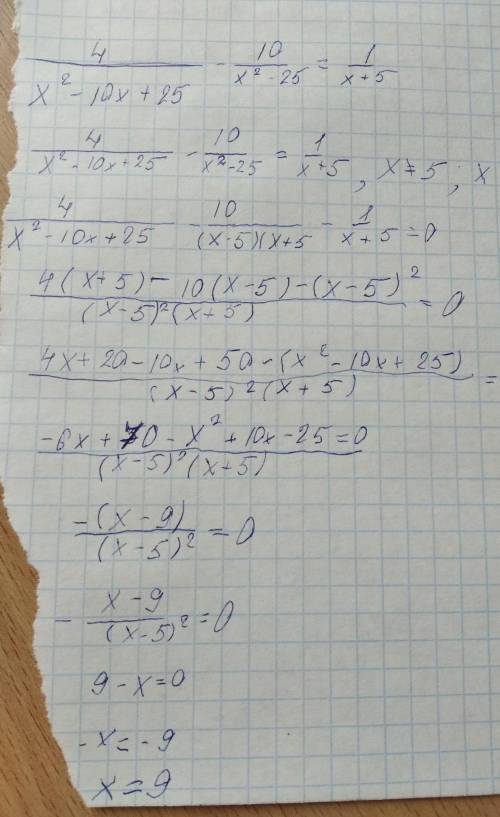 4/(x² - 10x + 25) - 10/(x² - 25) = 1/(x + 5)
4/(x² - 10x + 25) - 10/(x² - 25) = 1/(x + 5), x ≠ 5; x
4/(x² - 10x + 25) - 10/((x - 5)(x + 5) - 1/(x + 5) = 0
(4(x + 5) - 10(x - 5) - (x - 5)²)/((x - 5)²(x + 5)) = 0
(4x + 20 - 10x + 50 - (x² - 10x + 25))/((x - 5)²(x + 5)) =
(-6x + 70 - x² + 10x - 25 = 0)/((x - 5)²(x + 5))
-(x - 9)/(x - 5)² = 0
- (x - 9)/(x - 5)² = 0
9 - x = 0
-x = -9
x = 9